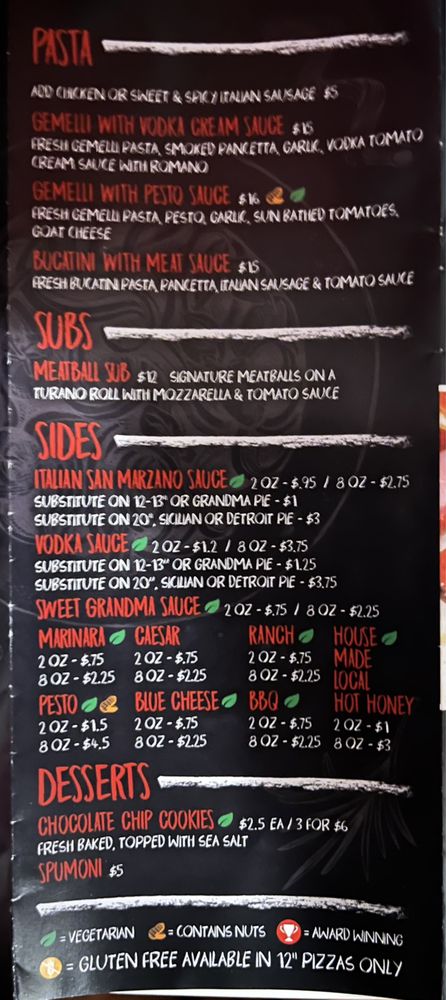 PASTA
ADD CHICKEN OR SWEET & SPICY ITALIAN SAUSAGE $5
GEMELLI WITH VODKA CREAM SAUCE $15
FRESH GEMELLI PASTA, SMOKED PANCETTA, GARLIC, VODKA TOMATO
CREAM SAUCE WITH ROMANO
GEMELLI WITH PESTO SAUCE $16
FRESH GEMELLI PASTA, PESTO, GARLIC, SUN BATHED TOMATOES,
GOAT CHEESE
BUCATINI WITH MEAT SAUCE $15
FRESH BUCATINI PASTA, PANCETTA, ITALIAN SAUSAGE & TOMATO SAUCE
SUBS
MEATBALL SUB $12 SIGNATURE MEATBALLS ON A
TURANO ROLL WITH MOZZARELLA & TOMATO SAUCE
SIDES
ITALIAN SAN MARZANO SAUCE 2 OZ - $.95 / 8 OZ - $2.75
SUBSTITUTE ON 12-13" OR GRANDMA PIE - $1
SUBSTITUTE ON 20", SICILIAN OR DETROIT PIE - $3
VODKA SAUCE 2 OZ - $1.2 / 8 OZ - $3.75
SUBSTITUTE ON 12-13" OR GRANDMA PIE - $1.25
SUBSTITUTE ON 20", SICILIAN OR DETROIT PIE - $3.75
SWEET GRANDMA SAUCE 2 OZ - $.75 / 8 OZ - $2.25
MARINARA
2 OZ - $.75
8 OZ - $2.25
CAESAR
2 OZ - $.75
8 OZ - $2.25
RANCH
2 OZ - $.75
8 OZ - $2.25
HOUSE
MADE
LOCAL
HOT HONEY
2 OZ - $1
8 OZ - $3
PESTO
2 OZ - $1.5
8 OZ - $4.5
BLUE CHEESE
2 OZ - $.75
8 OZ - $2.25
BBQ
2 OZ - $.75
8 OZ - $2.25
DESSERTS
CHOCOLATE CHIP COOKIES $2.5 EA / 3 FOR $6
FRESH BAKED, TOPPED WITH SEA SALT
SPUMONI $5
= VEGETARIAN = CONTAINS NUTS = AWARD WINNING
= GLUTEN FREE AVAILABLE IN 12" PIZZAS ONLY